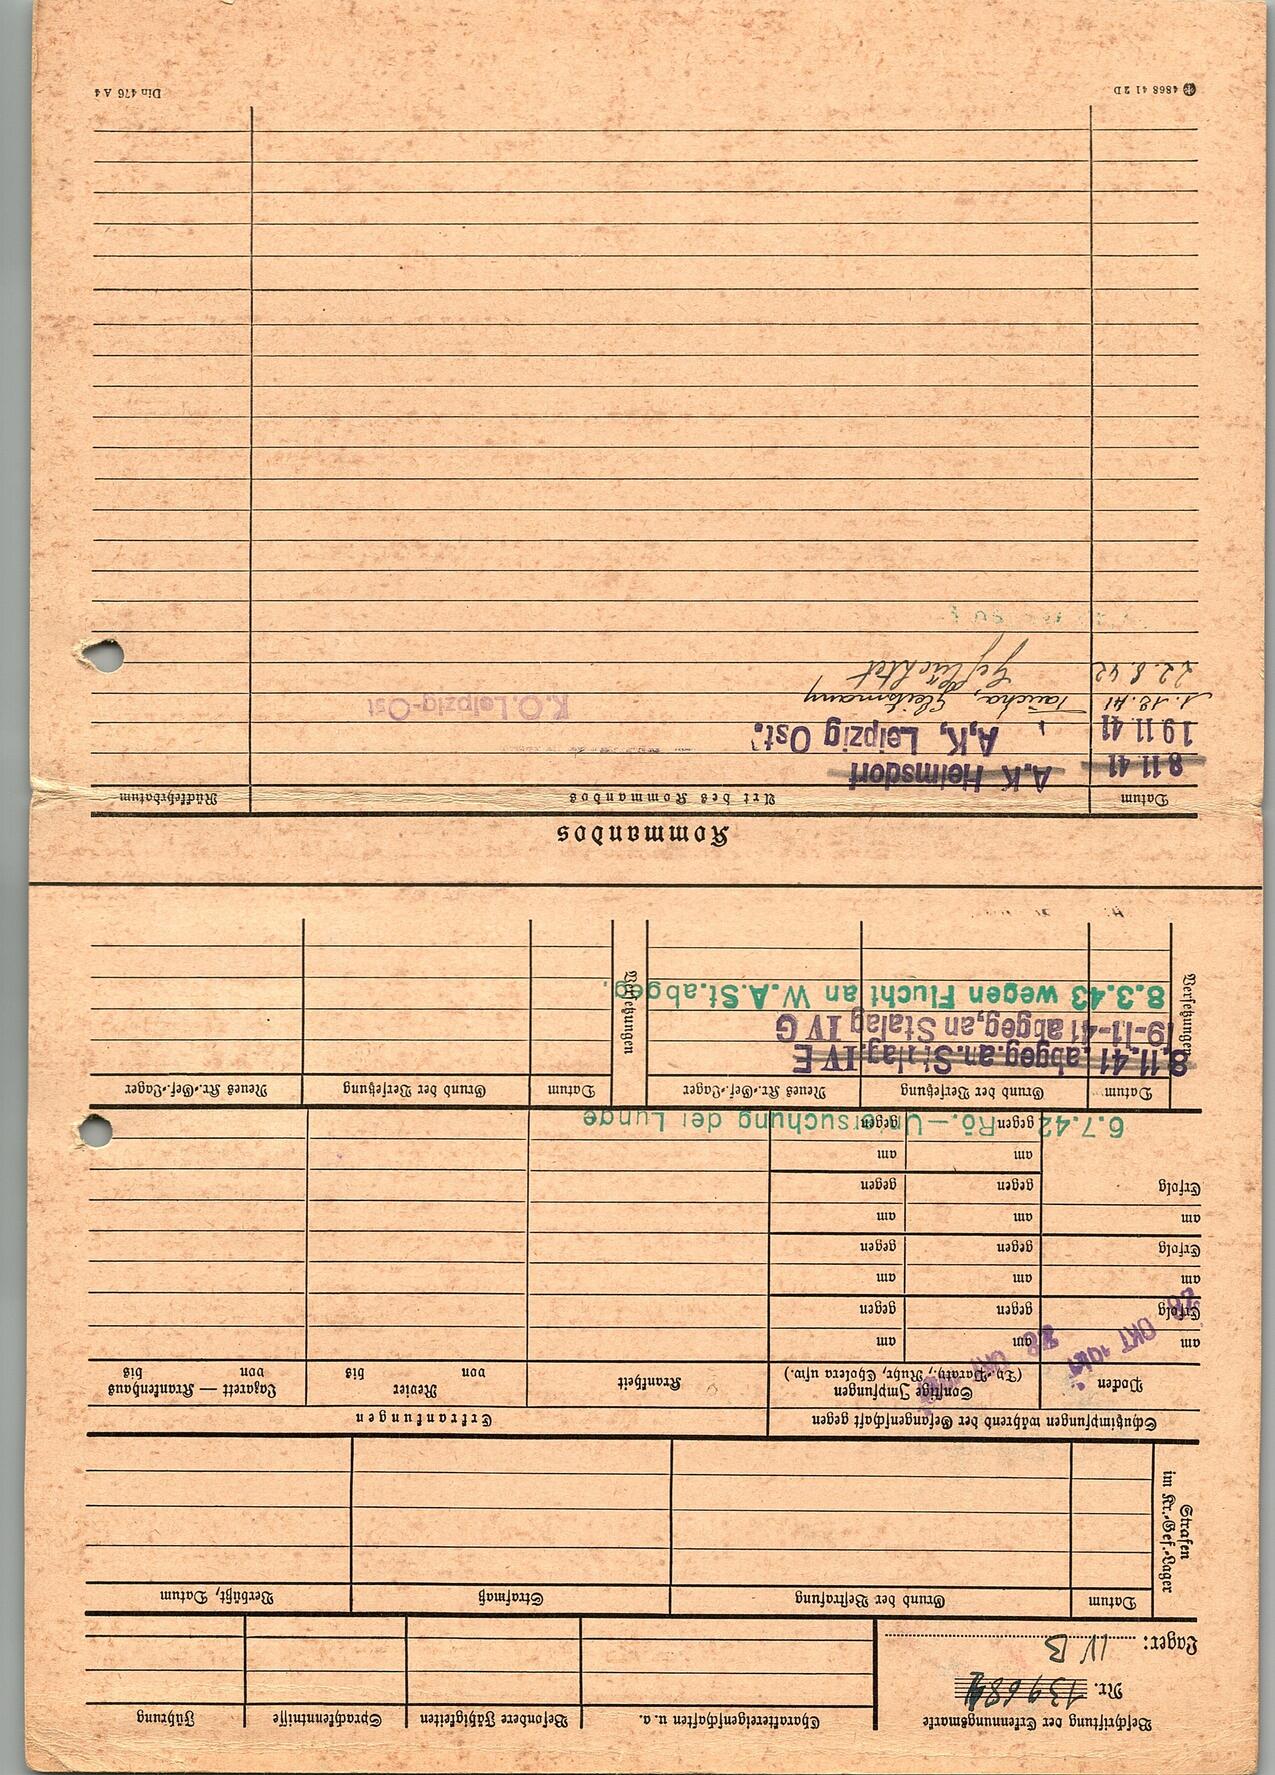 Beschriftung der Erkennungsmarke
Nr. 139684
Lager: IV B
Charaktereigenschaften u. a.
Besondere Fähigkeiten
Sprachkenntnisse
Führung
Strafen
im Kr.-Gef.-Lager
Datum
Grund der Bestrafung
Strafmaß
Verbüßt, Datum
Schutzimpfungen während der Gefangenschaft gegen
Erkrankungen
Pocken
Sonstige Impfungen
(Ty.-Paraty., Ruhr, Cholera usw.)
Krankheit
Revier
von bis
Lazarett — Krankenhaus
von bis
28 OKT 1941
28 OKT
am am am
Erfolg gegen gegen
am am am
Erfolg gegen gegen
am am am
Erfolg gegen gegen
am am
gegen gegen
6.7.42 Rö.-Untersuchung der Lunge
Versetzungen
Datum
Grund der Versetzung
Neues Kr.-Gef.-Lager
Versetzungen
Datum
Grund der Versetzung
Neues Kr.-Gef.-Lager
8.11.41 abgeg.an.Stalag.IV E
19-11-41 abgeg,an Stalag IV G
8.3.43 wegen Flucht an W.A.St.abgeg.
Kommandos
Datum
Art des Kommandos
Rückkehrdatum
8.11.41 A.K Helmsdorf
19.11.41 A,K, Leipzig Ost.
1.12.41 Taucha, K.O.Leipzig-Ost
22.8.42 Geflüchtet
4868 41 2D
Din 476 A 4